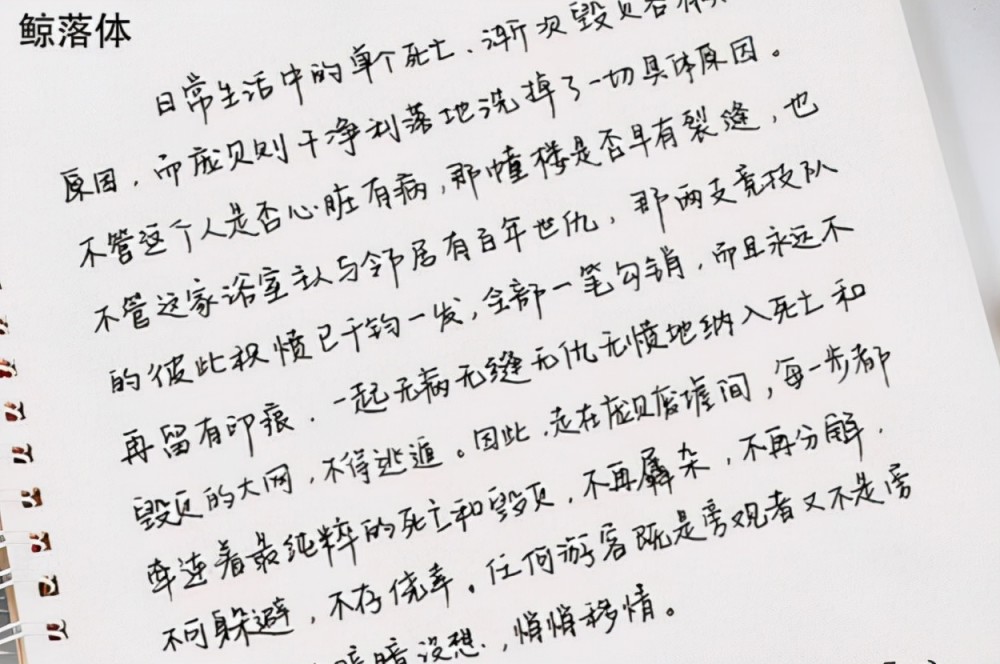 鲸落体
日常生活中的单个死亡、渐次毁灭各有
原因,而庞贝则干净利落地洗掉了一切具体原因。
不管这个人是否心脏有病,那幢楼是否早有裂缝,也
不管这家浴室主人与邻居有百年世仇,那两支竞技队
的彼此积愤已千钧一发,全部一笔勾销,而且永远不
再留有印痕.一起无病无缝无仇无愤地纳入死亡和
毁灭的大网,不得逃遁。因此.走在庞贝废墟间,每一步都
牵连着最纯粹的死亡和毁灭,不再羼杂,不再分解.
不可躲避,不存侥幸。任何游客既是旁观者又不是旁
暗暗设想.,悄悄移情。